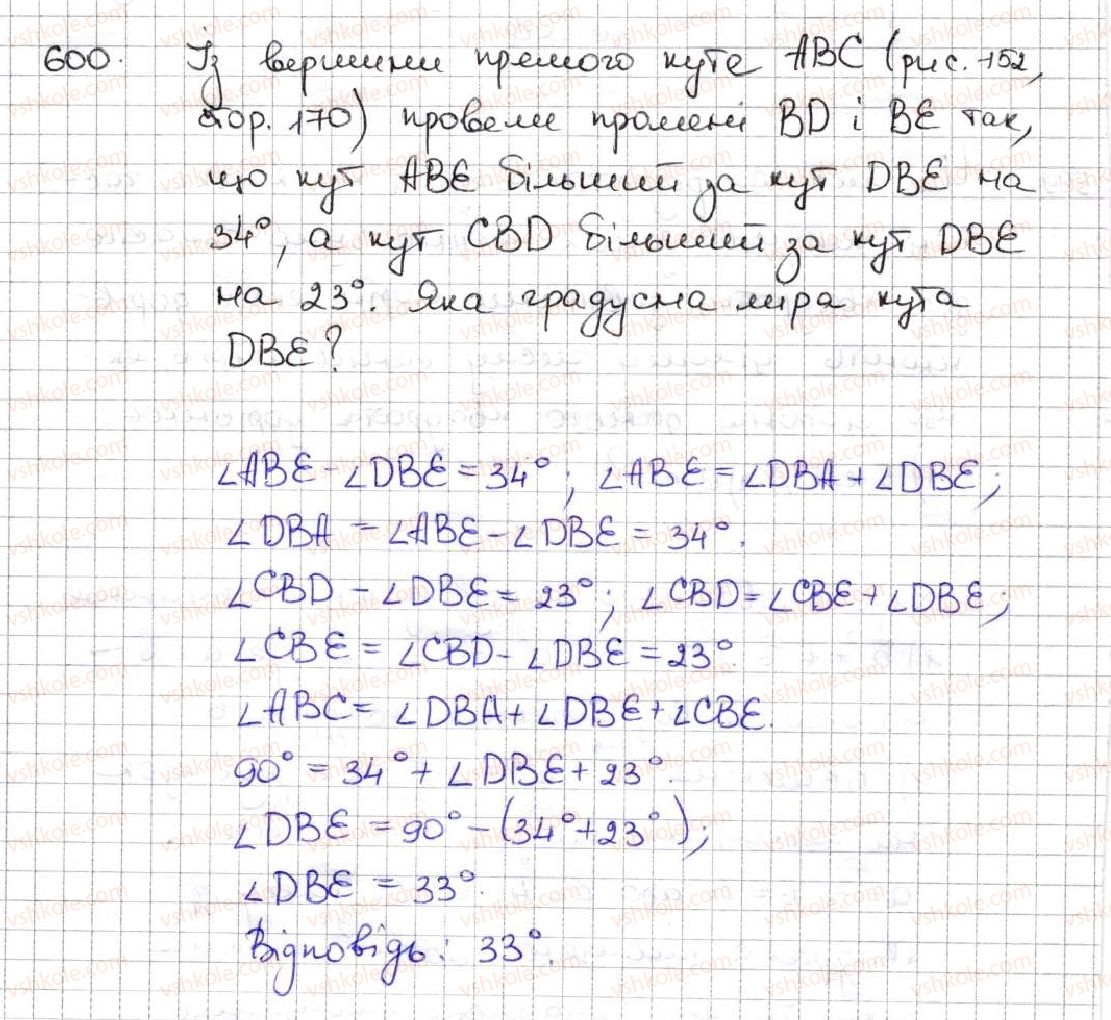 600. Із вершини премого куте ABC (рис. 152,
стор. 170) провели промені BD і BE так,
що кут ABE більший за кут DBE на
34°, а кут CBD більший за кут DBE
на 23°. Яка градусна мира кута
DBE?
∠ABE - ∠DBE = 34°; ∠ABE = ∠DBA + ∠DBE;
∠DBA = ∠ABE - ∠DBE = 34°.
∠CBD - ∠DBE = 23°; ∠CBD = ∠CBE + ∠DBE;
∠CBE = ∠CBD - ∠DBE = 23°.
∠ABC = ∠DBA + ∠DBE + ∠CBE.
90° = 34° + ∠DBE + 23°.
∠DBE = 90° - (34° + 23°);
∠DBE = 33°.
Відповідь: 33°.